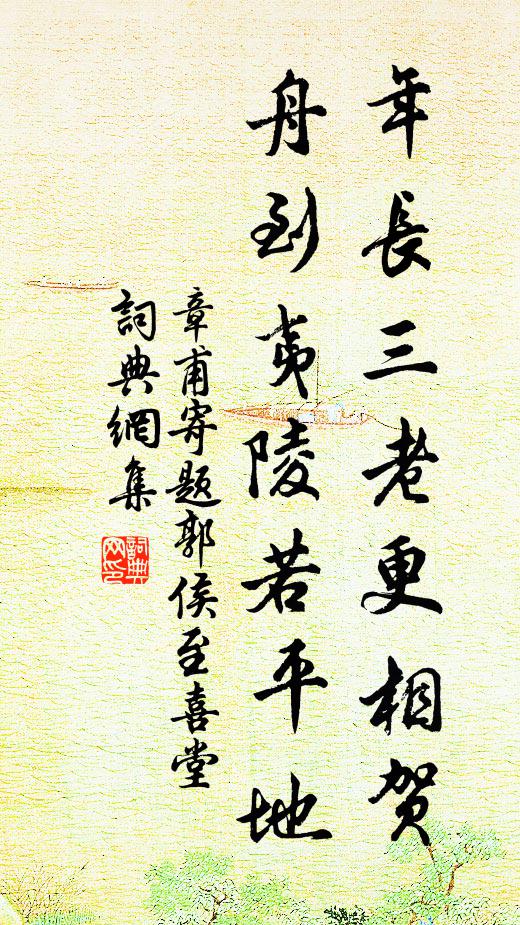 年長三老更相賀
舟到夷陵若平地
章甫寄題郭侯至喜堂
詞典網集
詞典网印